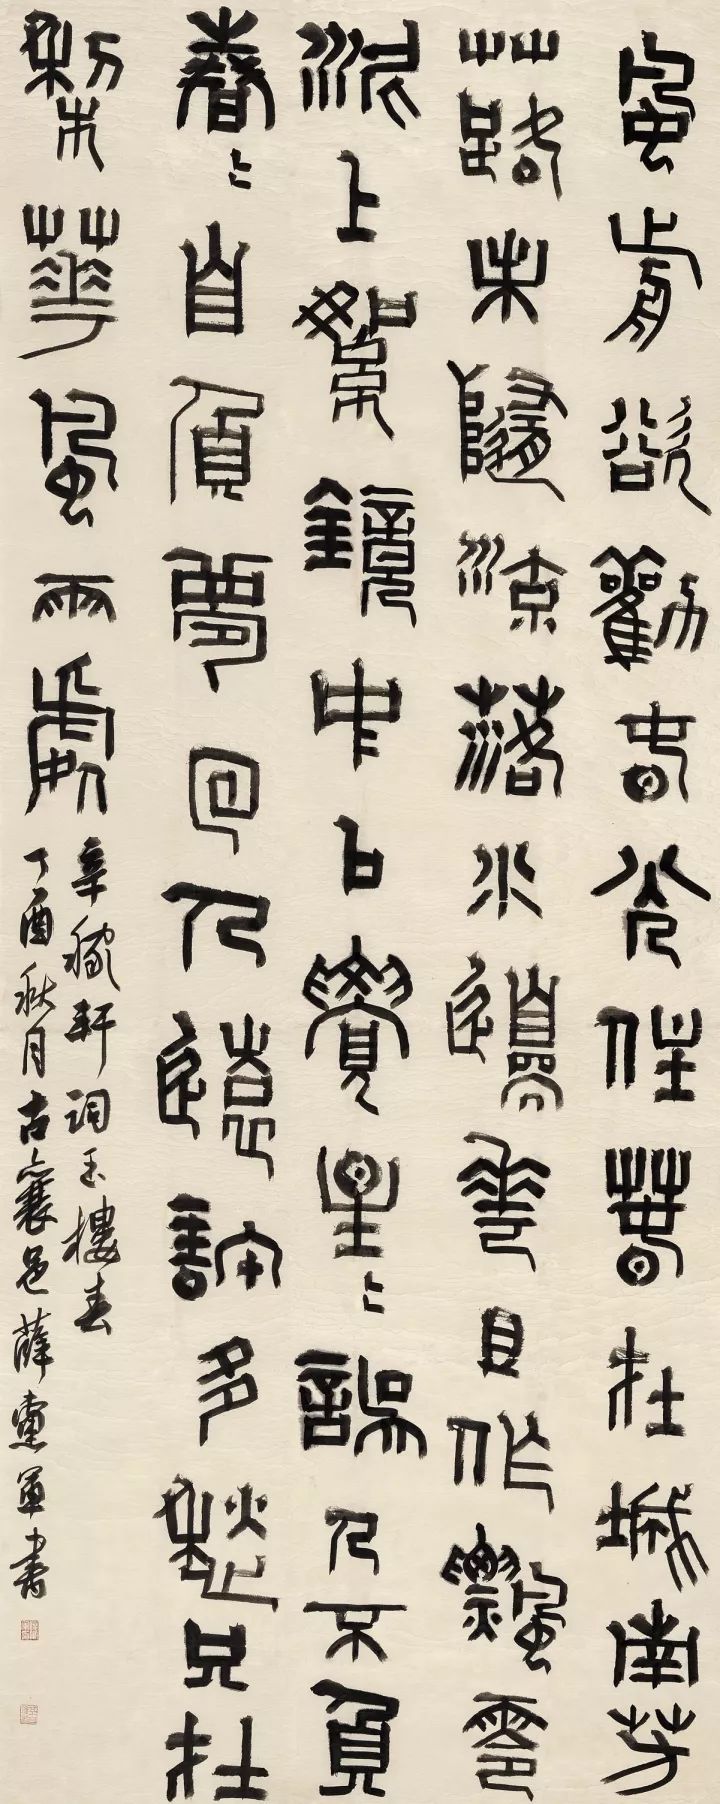 風前欲勸春光住春在城南芳
艸路未隨流落水邊華且作飄零
泥上絮鏡中已覺星〻誤人不負
春〻自負夢回人遠許多愁只在
梨華風雨處
辛稼軒詞玉樓春
丁酉秋月古襄邑薛軍書